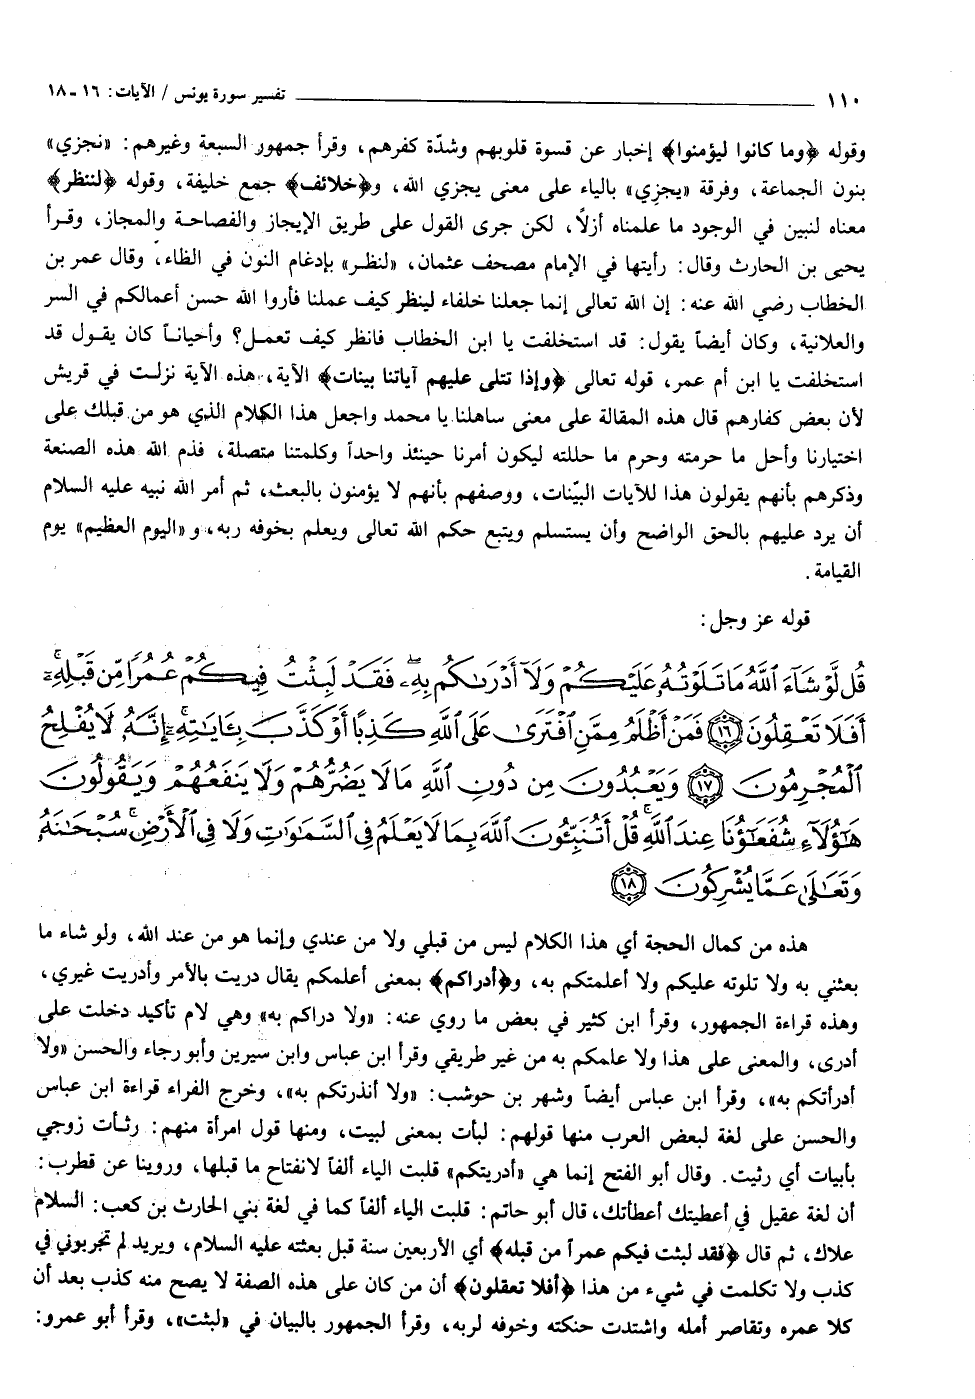 ١١٠ ــــــــــــــــ تفسير سورة يونس / الآيات: ١٦ - ١٨
وقوله ﴿وما كانوا ليؤمنوا﴾ إخبار عن قسوة قلوبهم وشدّة كفرهم، وقرأ جمهور السبعة وغيرهم: «نجزي»
بنون الجماعة، وفرقة «يجزي» بالياء على معنى يجزي الله، و﴿خلائف﴾ جمع خليفة، وقوله ﴿لننظر﴾
معناه لنبين في الوجود ما علمناه أزلاً، لكن جرى القول على طريق الإيجاز والفصاحة والمجاز، وقرأ
يحيى بن الحارث وقال: رأيتها في الإمام مصحف عثمان، «لنظر» بإدغام النون في الظاء، وقال عمر بن
الخطاب رضي الله عنه: إن الله تعالى إنما جعلنا خلفاء لينظر كيف عملنا فأروا الله حسن أعمالكم في السر
والعلانية، وكان أيضاً يقول: قد استخلفت يا ابن الخطاب فانظر كيف تعمل؟ وأحياناً كان يقول قد
استخلفت يا ابن أم عمر، قوله تعالى ﴿وإذا تتلى عليهم آياتنا بينات﴾ الآية، هذه الآية نزلت في قريش
لأن بعض كفارهم قال هذه المقالة على معنى ساهلنا يا محمد واجعل هذا الكلام الذي هو من قبلك على
اختيارنا وأحل ما حرمته وحرم ما حللته ليكون أمرنا حينئذ واحداً وكلمتنا متصلة، فذم الله هذه الصنعة
وذكرهم بأنهم يقولون هذا للآيات البيّنات، ووصفهم بأنهم لا يؤمنون بالبعث، ثم أمر الله نبيه عليه السلام
أن يرد عليهم بالحق الواضح وأن يستسلم ويتبع حكم الله تعالى ويعلم بخوفه ربه، و «اليوم العظيم» يوم
القيامة.
قوله عز وجل:
قُل لَّوْ شَآءَ ٱللَّهُ مَا تَلَوْتُهُۥ عَلَيْكُمْ وَلَآ أَدْرَىٰكُم بِهِۦ ۖ فَقَدْ لَبِثْتُ فِيكُمْ عُمُرًا مِّن قَبْلِهِۦٓ ۚ
أَفَلَا تَعْقِلُونَ ﴿١٦﴾ فَمَنْ أَظْلَمُ مِمَّنِ ٱفْتَرَىٰ عَلَى ٱللَّهِ كَذِبًا أَوْ كَذَّبَ بِـَٔايَٰتِهِۦٓ ۚ إِنَّهُۥ لَا يُفْلِحُ
ٱلْمُجْرِمُونَ ﴿١٧﴾ وَيَعْبُدُونَ مِن دُونِ ٱللَّهِ مَا لَا يَضُرُّهُمْ وَلَا يَنفَعُهُمْ وَيَقُولُونَ
هَٰٓؤُلَآءِ شُفَعَٰٓؤُنَا عِندَ ٱللَّهِ ۚ قُلْ أَتُنَبِّـُٔونَ ٱللَّهَ بِمَا لَا يَعْلَمُ فِى ٱلسَّمَٰوَٰتِ وَلَا فِى ٱلْأَرْضِ ۚ سُبْحَٰنَهُۥ
وَتَعَٰلَىٰ عَمَّا يُشْرِكُونَ ﴿١٨﴾
هذه من كمال الحجة أي هذا الكلام ليس من قبلي ولا من عندي وإنما هو من عند الله، ولو شاء ما
بعثني به ولا تلوته عليكم ولا أعلمتكم به، و﴿أدراكم﴾ بمعنى أعلمكم يقال دريت بالأمر وأدريت غيري،
وهذه قراءة الجمهور، وقرأ ابن كثير في بعض ما روي عنه: «ولا دراكم به» وهي لام تأكيد دخلت على
أدرى، والمعنى على هذا ولا علمكم به من غير طريقي وقرأ ابن عباس وابن سيرين وأبو رجاء والحسن «ولا
أدرأتكم به»، وقرأ ابن عباس أيضاً وشهر بن حوشب: «ولا أنذرتكم به»، وخرج الفراء قراءة ابن عباس
والحسن على لغة لبعض العرب منها قولهم: لبأت بمعنى لبيت، ومنها قول امرأة منهم: رثأت زوجي
بأبيات أي رثيت. وقال أبو الفتح إنما هي «أدريتكم» قلبت الياء ألفاً لانفتاح ما قبلها، وروينا عن قطرب:
أن لغة عقيل في أعطيتك أعطأتك، قال أبو حاتم: قلبت الياء ألفاً كما في لغة بني الحارث بن كعب: السلام
علاك، ثم قال ﴿فقد لبثت فيكم عمراً من قبله﴾ أي الأربعين سنة قبل بعثته عليه السلام، ويريد لم تجربوني في
كذب ولا تكلمت في شيء من هذا ﴿أفلا تعقلون﴾ أن من كان على هذه الصفة لا يصح منه كذب بعد أن
كلا عمره وتقاصر أمله واشتدت حنكته وخوفه لربه، وقرأ الجمهور بالبيان في «لبثت»، وقرأ أبو عمرو: